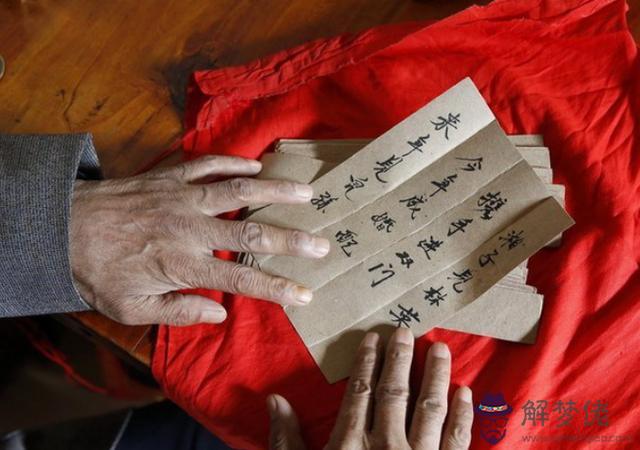 湘子见林英
携手进双门
今年成婚配
来年见兒孙
解梦佬